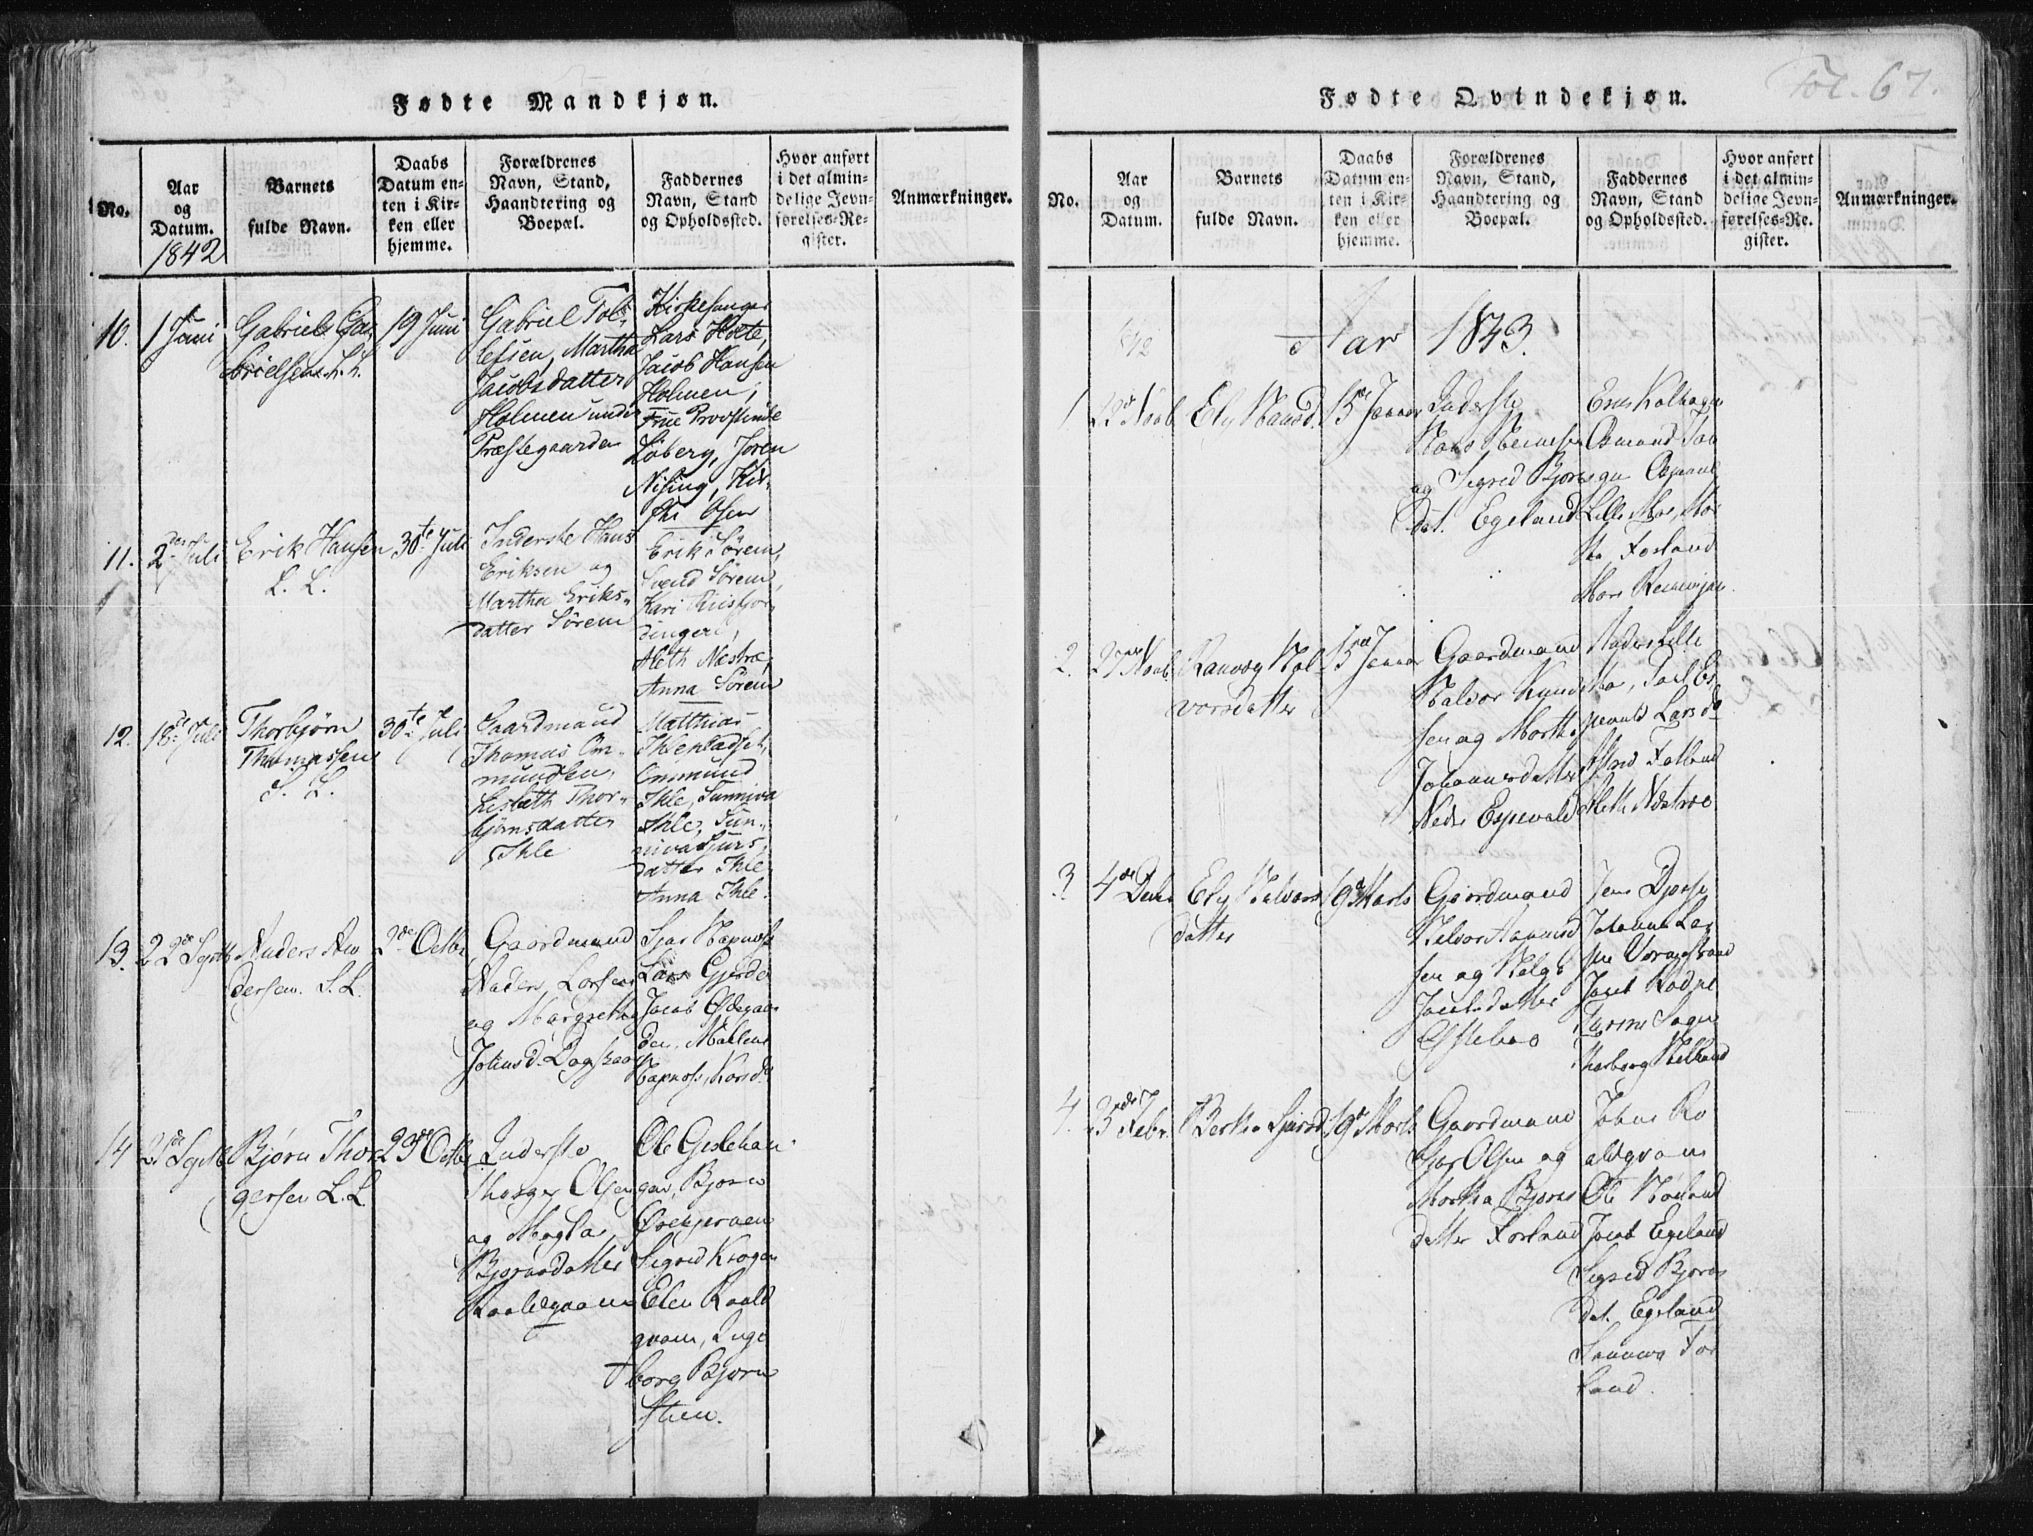 Fødte Mandkjøn.
No.
Aar
og
Datum.
1842
Barnets
fulde Navn.
Daabs
Datum en-
ten i Kir-
ken eller
hjemme.
Forældrenes
Navn, Stand,
Haandtering og
Boepæl.
Faddernes
Navn, Stand
og Opholdssted.
Hvor anført
i det almin-
delige Jevn-
førelses-Re-
gister.
Anmærkninger.
10.
1 Juni
Gabriels Ga-
brielsen L.L.
19 Juni
Gabriel Tol-
lefsen, Martha
Jacobsdatter
Holmen under
Præstegaarden
Kirkesanger
Lars Holte,
Jacob Hansen
Holmen,
Frue Provstinde
Løberg, Joren
Nising, Kir-
sti Osen
11.
2den Juli
Erik Hansen
L. L.
30te Juli
Inderste Hans
Eriksen og
Martha Eriks-
datter Sørem
Erik Sørem,
Svend Sørem,
Kari Riisfjor-
dingen,
Aleth Næstrø,
Anna Sørem
12.
18de Juli
Thorbjørn
Thomassen
L. L.
30te Juli
Gaardmand
Thomas Om-
mundsen,
Lisbeth Thor-
bjørnsdatter
Ihle
Matthias
Ihlepladset,
Ommund
Ihle, Sunniva
Ihle, Sun-
niva Sjurs-
datter Ihle
Anna Ihle.
13.
22de Septb
Anders An-
dersen. L.L.
2de Octbr
Gaardmand
Anders Larsen
og Margrethe
Johnsd. Dagsaa
Sjur Hapnæs
Lars Gjerde
Jacob Ødegaar-
den, Malene
Hapnæs, Karid
14
21de Septb
Bjørn Thor-
gersen L.L.
23de Octbr
Inderste
Thorger Olsen
og Magla
Bjørnsdatter
Raaldqvam
Ole Gislehau-
gen, Bjørn
Øvekjernen
Sigrid Krogen
Elen Raald
qvam, Inge
borg Bjørn
stien.
Fødte Qvindekjøn.
Fol. 67.
No.
Aar
og
Datum.
Barnets
fulde Navn.
Daabs
Datum en-
ten i Kir-
ken eller
hjemme.
Forældrenes
Navn, Stand,
Haandtering og
Boepæl.
Faddernes
Navn, Stand
og Opholdssted.
Hvor anført
i det almin-
delige Jevn-
førelses-Re-
gister.
Anmærkninger.
Aar 1843.
1
22de Novb
Ely Hansd.
15de Januar
Inderste
Hans
og Sigrid Bjørns
dat. Egeland
Lille Moe, Mar
the Forland
2.
27de Novb
Ranvey Hal-
vorsdatter
15de Januar
Gaardmand
Halvor Knud
sen og Marthe
Johannesdatter
Nedre Espevold
Anders Lille
Moe,
Lars
Aleth Næstrøe
3
4de Decbr
Ely Halvors
datter
19de Marts
Gaardmand
Halvor Aanund
sen og Helge
Jacobsdatter
Østebøe
Jens
Johannes Lar-
sen
4.
23de Febr.
Bertha Sjursd
19de Marts
Gaardmand
Sjur Olsen og
Martha Bjørns
datter Forland
Johns Ra
aldqvam
Ole Høiland
Jacob Egeland
Sigrid Bjørns
dat. Egeland
Sunniva For
land.